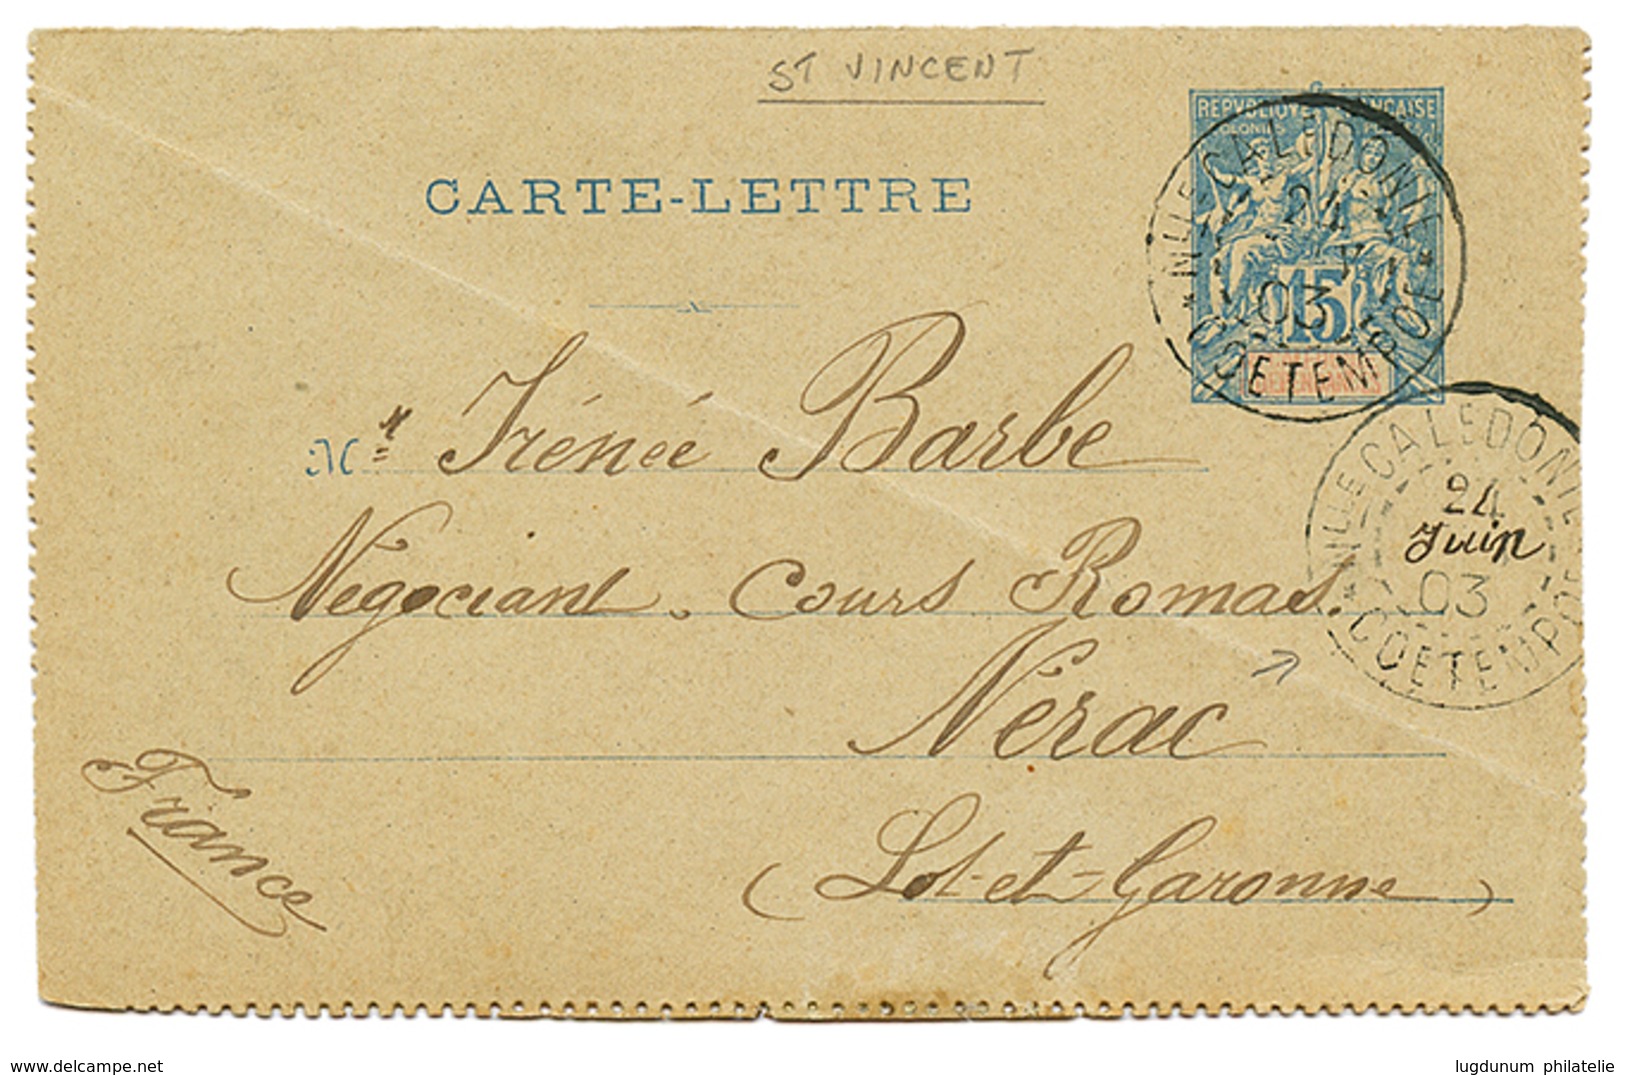 ST VINCENT
REPVBLIQVE FRANÇAISE
COLONIES
CARTE-LETTRE
NLLE CALEDONIE
24
03
COETEMPOE
15
Mr Irénée Barbe
NLLE CALEDONIE
24
Juin
03
COETEMPOE
Négociant. Cours Romas.
Nérac
France
(Lot-et-Garonne)
www.delcampe.net
lugdunum philatelie